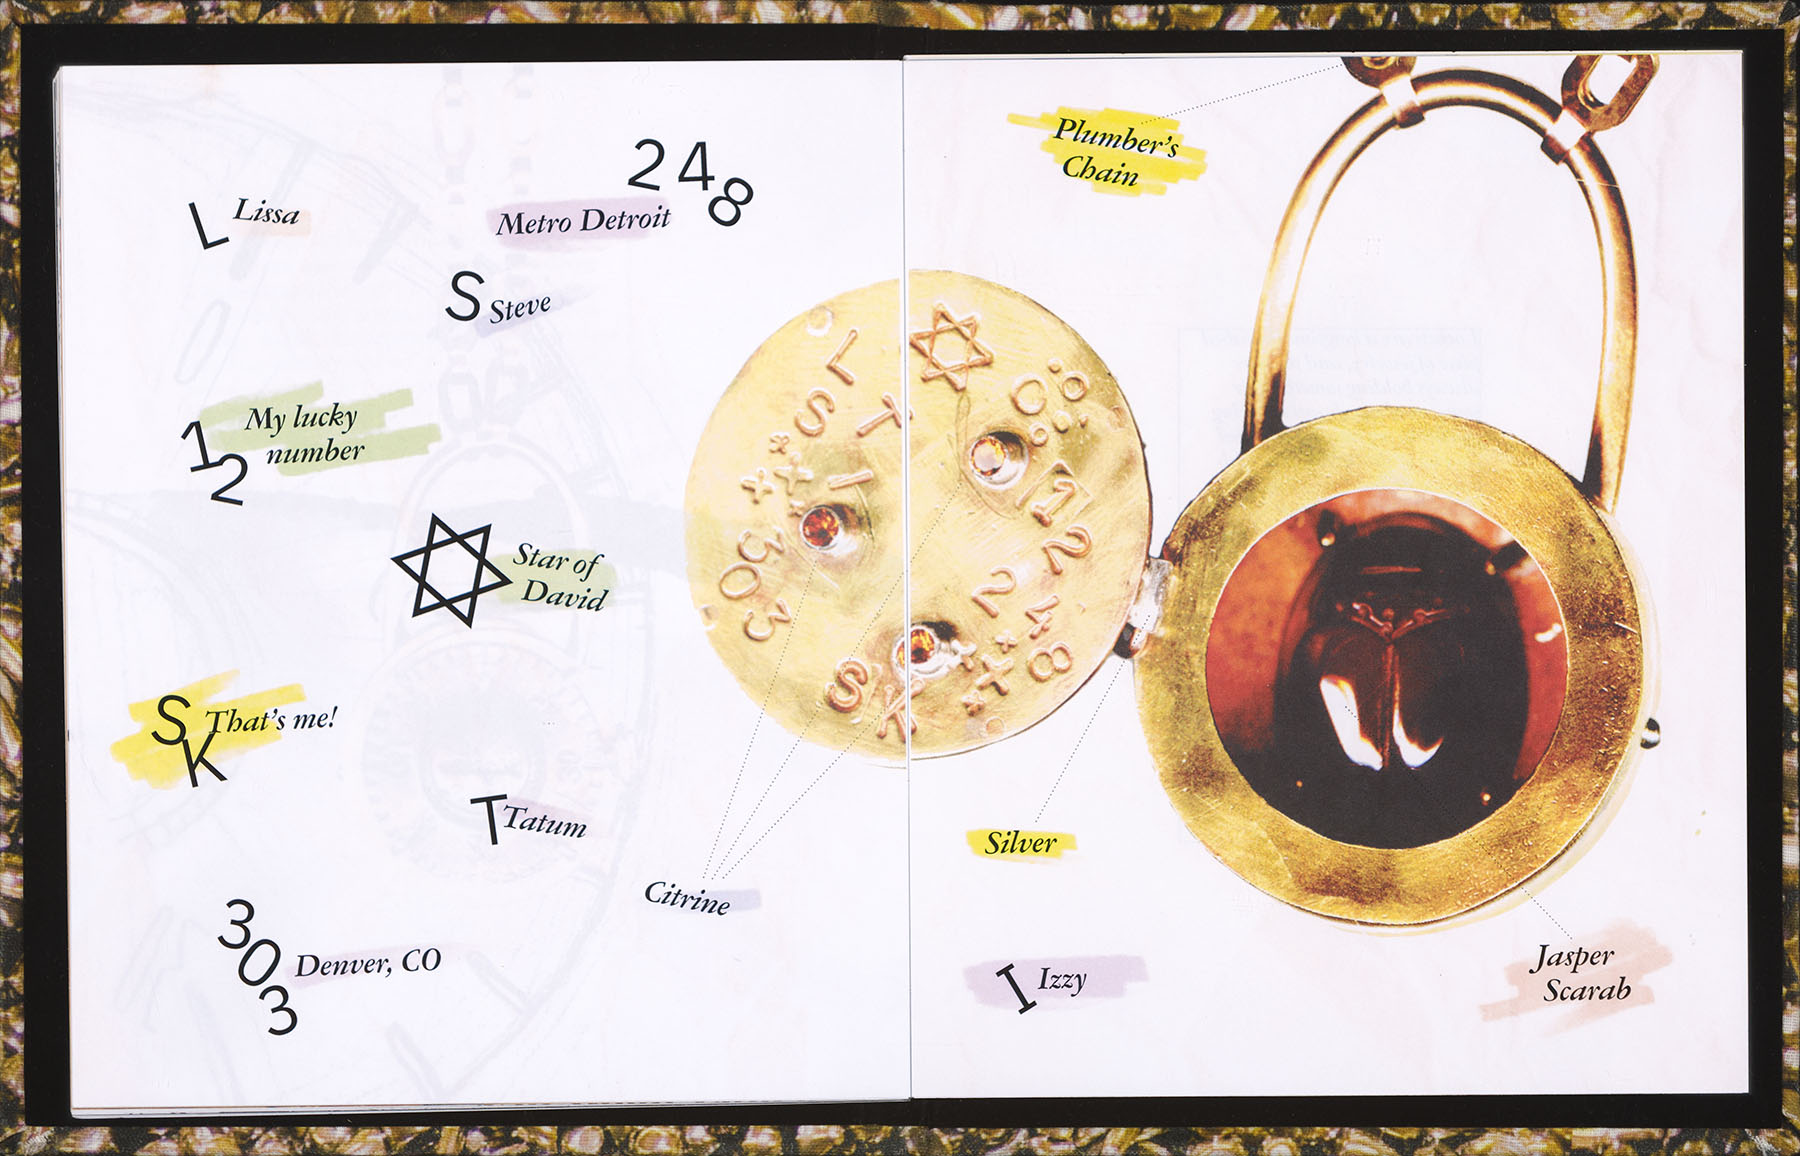 248
L Lissa
Metro Detroit
S Steve
12
My lucky
number
Star of
David
SK
That's me!
T Tatum
Citrine
303
Denver, CO
Plumber's
Chain
L
S T
I
303
SK
12
248
Silver
I Izzy
Jasper
Scarab